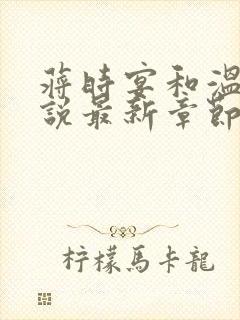 蔣時宴和溫
說最新章節
柠檬馬卡龍